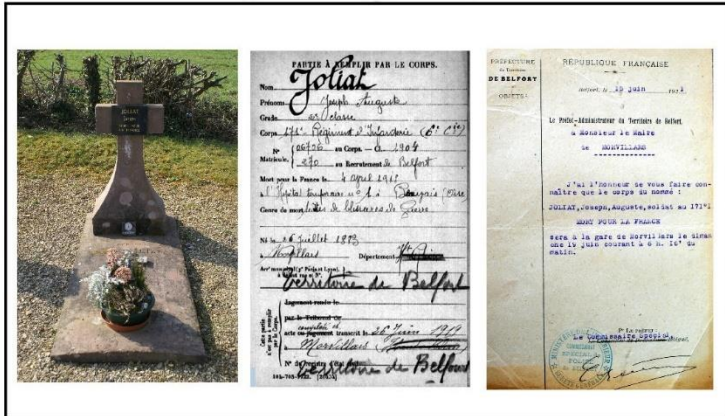 JOLIAT
PARTIE À REMPLIR PAR LE CORPS.
Joliat
Nom
Prénoms Joseph Auguste
Grade
Corps 171e Régiment d'Infanterie (6e Cie)
N°
Matricule.
au Corps. — Cl. 1904
870 au Recrutement de Belfort
Mort pour la France le 4 avril 1915
à l'Hôpital temporaire n° 1 à
Genre de mort suites de blessures de Guerre
Né le 26 Juillet
à Morvillars Département
Territoire de Belfort
Jugement rendu le
par le Tribunal de
acte ou jugement transcrit le 26 Juin 1919
à Morvillars
Territoire de Belfort
PRÉFECTURE
DE BELFORT
OBJET:
RÉPUBLIQUE FRANÇAISE
Belfort, le 15 juin
Le Préfet-Administrateur du Territoire de Belfort,
à Monsieur le Maire
de MORVILLARS
J'ai l'honneur de vous faire con-
naître que le corps du nommé :
JOLIAT, Joseph, Auguste, soldat au 171°I
MORT POUR LA FRANCE
sera à la gare de Morvillars le diman
che 19 juin courant à 8 H. 16' du
matin.
Le Commissaire Spécial,